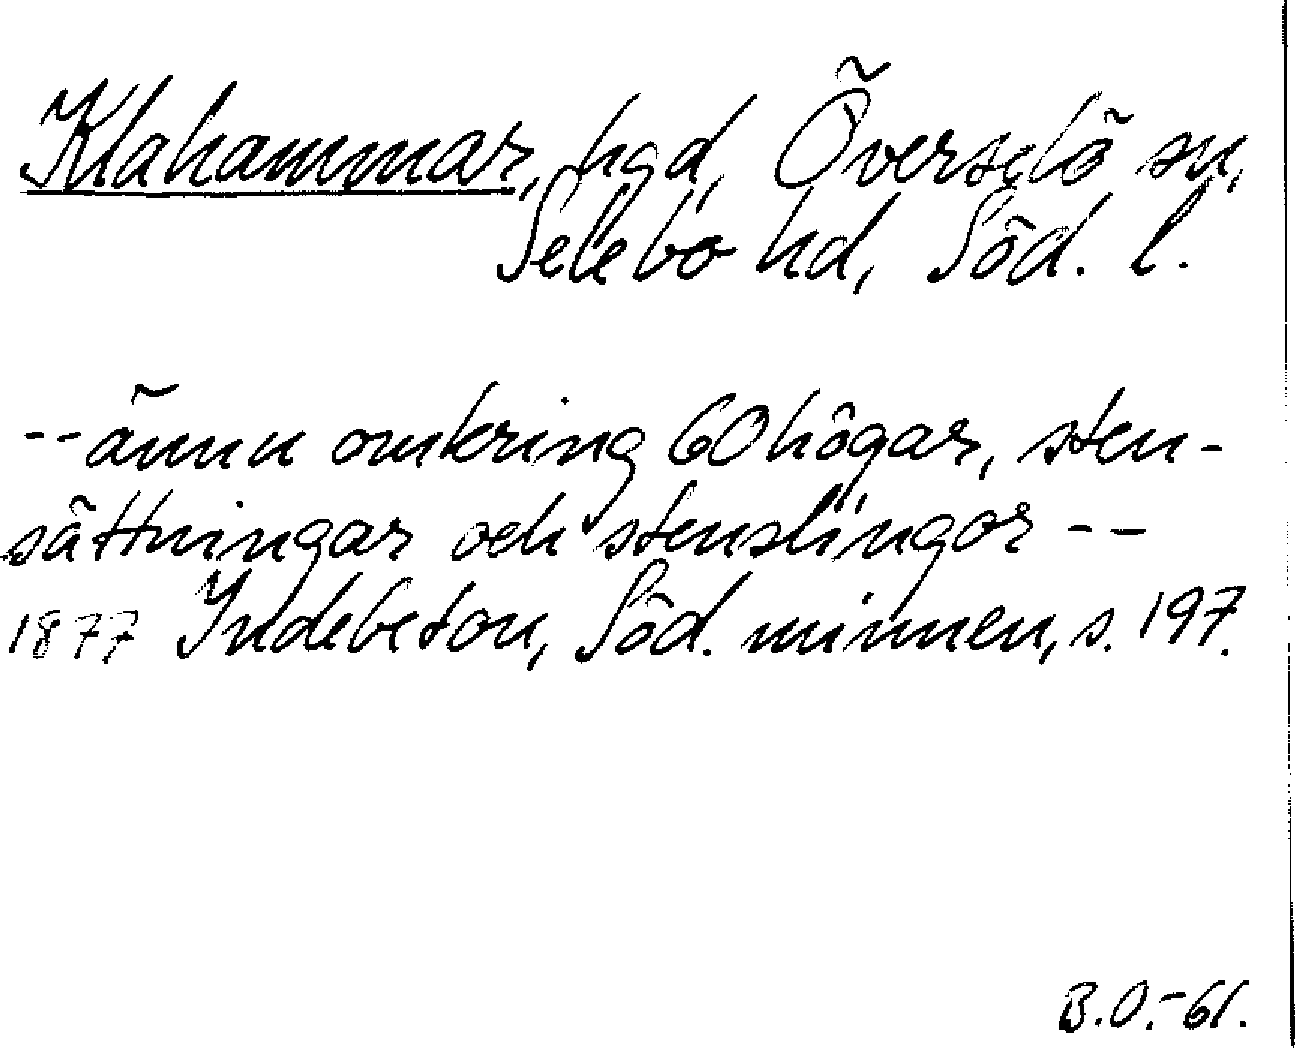 Klahammar, hgd, Överselö sn,
Selebo hd, Söd. l.
--ännu omkring 60 högar, sten-
sättningar och stenslingor --
1877 Indebetou, Söd. minnen, s. 197.
B.O.-61.